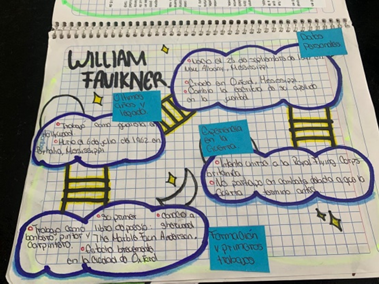 WILLIAM
FAULKNER
Datos
Personales
Nació el 25 de septiembre de
New Albany, Mississippi
Criado en Oxford, Mississippi
Cambio la escritura de su apellido
en la juventud
Últimos
años y
legado
Trabajó como guionista en
Hollywood
Murió el 6 de julio de 1962 en
Mississippi
Experiencia
en la
Guerra
Intentó unirse a la Royal Flying Corps
No participó en combate debido a que la
Guerra terminó antes
Trabajó como
pintor y
carpintero
Su primer
libro de poesía
The Marble Faun
Estudió brevemente
en la de Oxford
Conoció a
Sherwood
Anderson
Formación
y primeros
trabajos